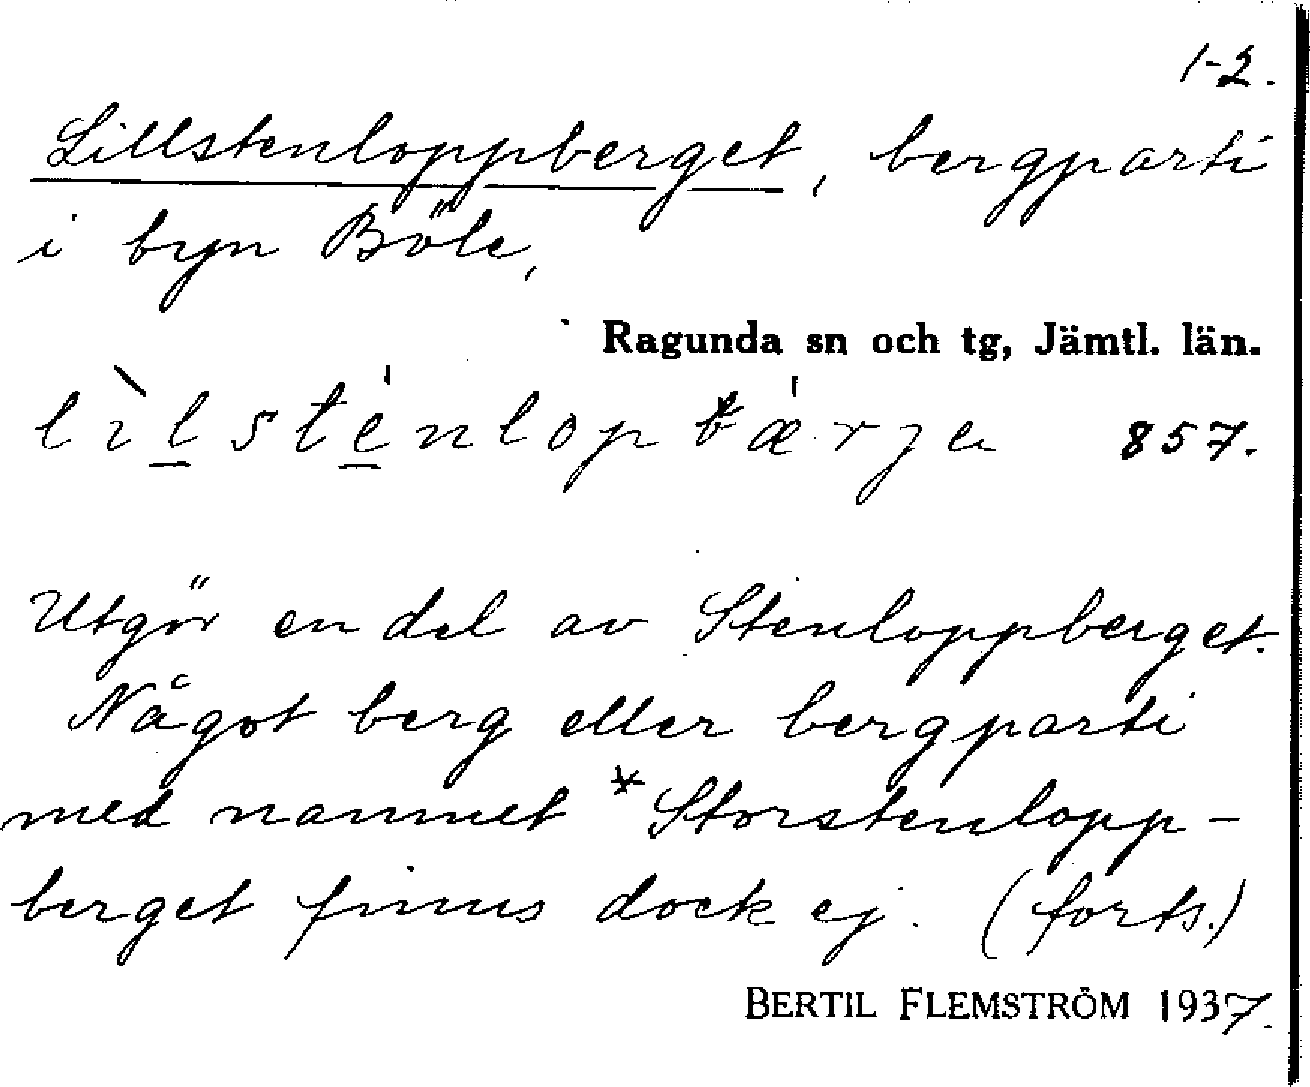 1-2.
Lillstenloppberget, bergparti
i byn Böle,
Ragunda sn och tg, Jämtl. län.
857.
Utgör en del av Stenloppberget.
Något berg eller bergparti
med namnet *Storstenlopp-
berget finns dock ej. (forts.)
BERTIL FLEMSTRÖM 1937.